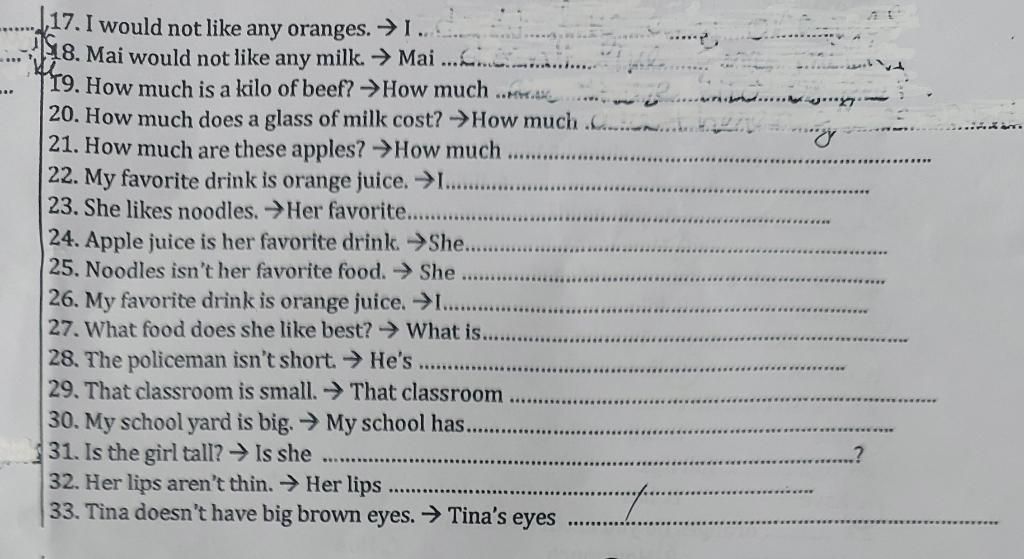 17. I would not like any oranges. → I ..
18. Mai would not like any milk. → Mai ...
19. How much is a kilo of beef? →How much ..
20. How much does a glass of milk cost? →How much .
21. How much are these apples? →How much ..........
22. My favorite drink is orange juice. →I..........
23. She likes noodles. →Her favorite..........
24. Apple juice is her favorite drink. →She..........
25. Noodles isn't her favorite food. → She ..........
26. My favorite drink is orange juice. →I..........
27. What food does she like best? → What is..........
28. The policeman isn't short. → He's ..........
29. That classroom is small. → That classroom ..........
30. My school yard is big. → My school has..........
31. Is the girl tall? → Is she ..........?
32. Her lips aren't thin. → Her lips ..........
33. Tina doesn't have big brown eyes. → Tina's eyes ..........